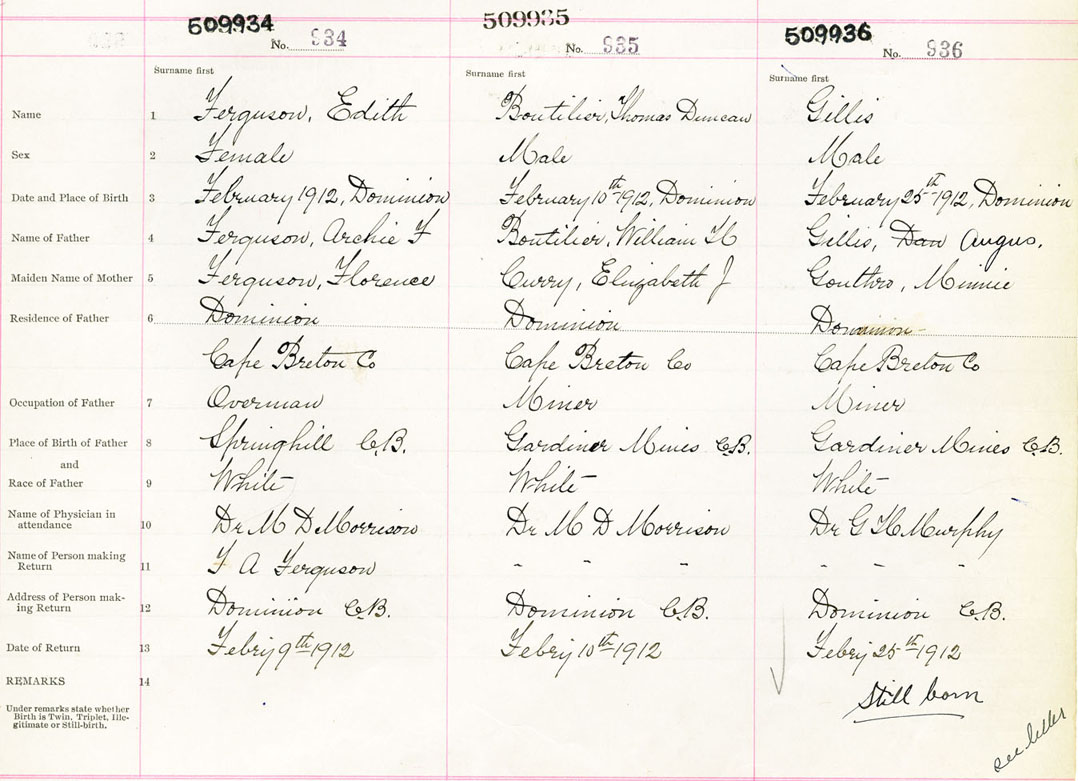 509934 509935 509936
No. 934 No. 935 No. 936
Surname first Surname first Surname first
Name 1 Ferguson, Edith Boutilier, Thomas Duncan Gillis
Sex 2 Female Male Male
Date and Place of Birth 3 February 1912, Dominion February 10th 1912, Dominion February 25th 1912, Dominion
Name of Father 4 Ferguson, Archie F Boutilier, William H Gillis, Dan Angus.
Maiden Name of Mother 5 Ferguson, Florence Curry, Elizabeth J Gouthro, Minnie
Residence of Father 6 Dominion Dominion Dominion
Cape Breton Co Cape Breton Co Cape Breton Co
Occupation of Father 7 Overman Miner Miner
Place of Birth of Father 8 Springhill C.B. Gardiner Mines C.B. Gardiner Mines C.B.
and
Race of Father 9 White White White
Name of Physician in
attendance 10 Dr M D Morrison Dr M D Morrison Dr G H Murphy
Name of Person making
Return 11 F A Ferguson - - - - - -
Address of Person mak-
ing Return 12 Dominion C.B. Dominion C.B. Dominion C.B.
Date of Return 13 Febry 9th 1912 Febry 10th 1912 Febry 25th 1912
REMARKS 14 Still born
Under remarks state whether
Birth is Twin, Triplet, Ille-
gitimate or Still-birth.
see letter